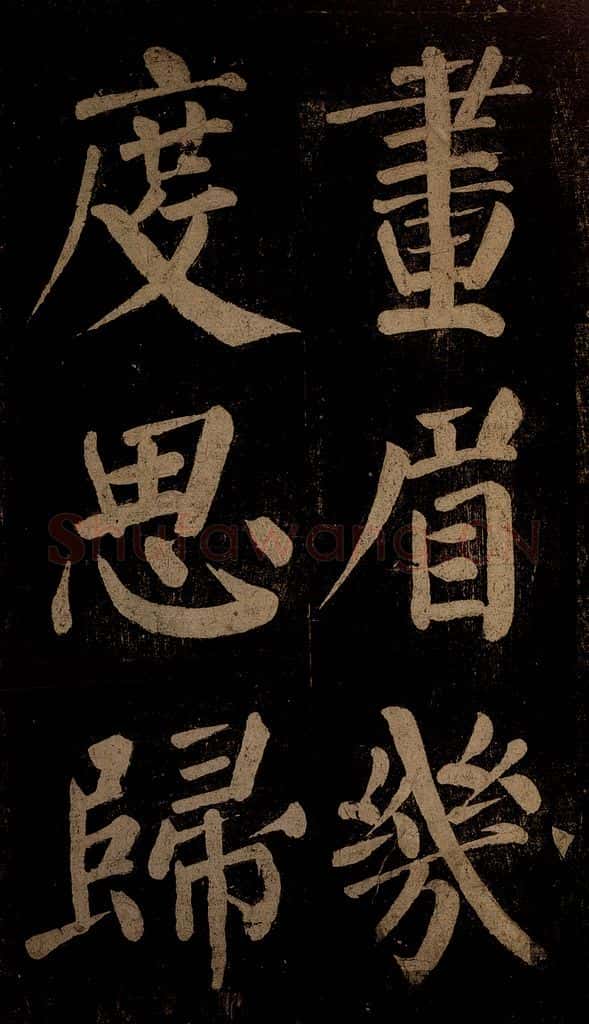 畫眉幾
度思歸
Shufawang.CN